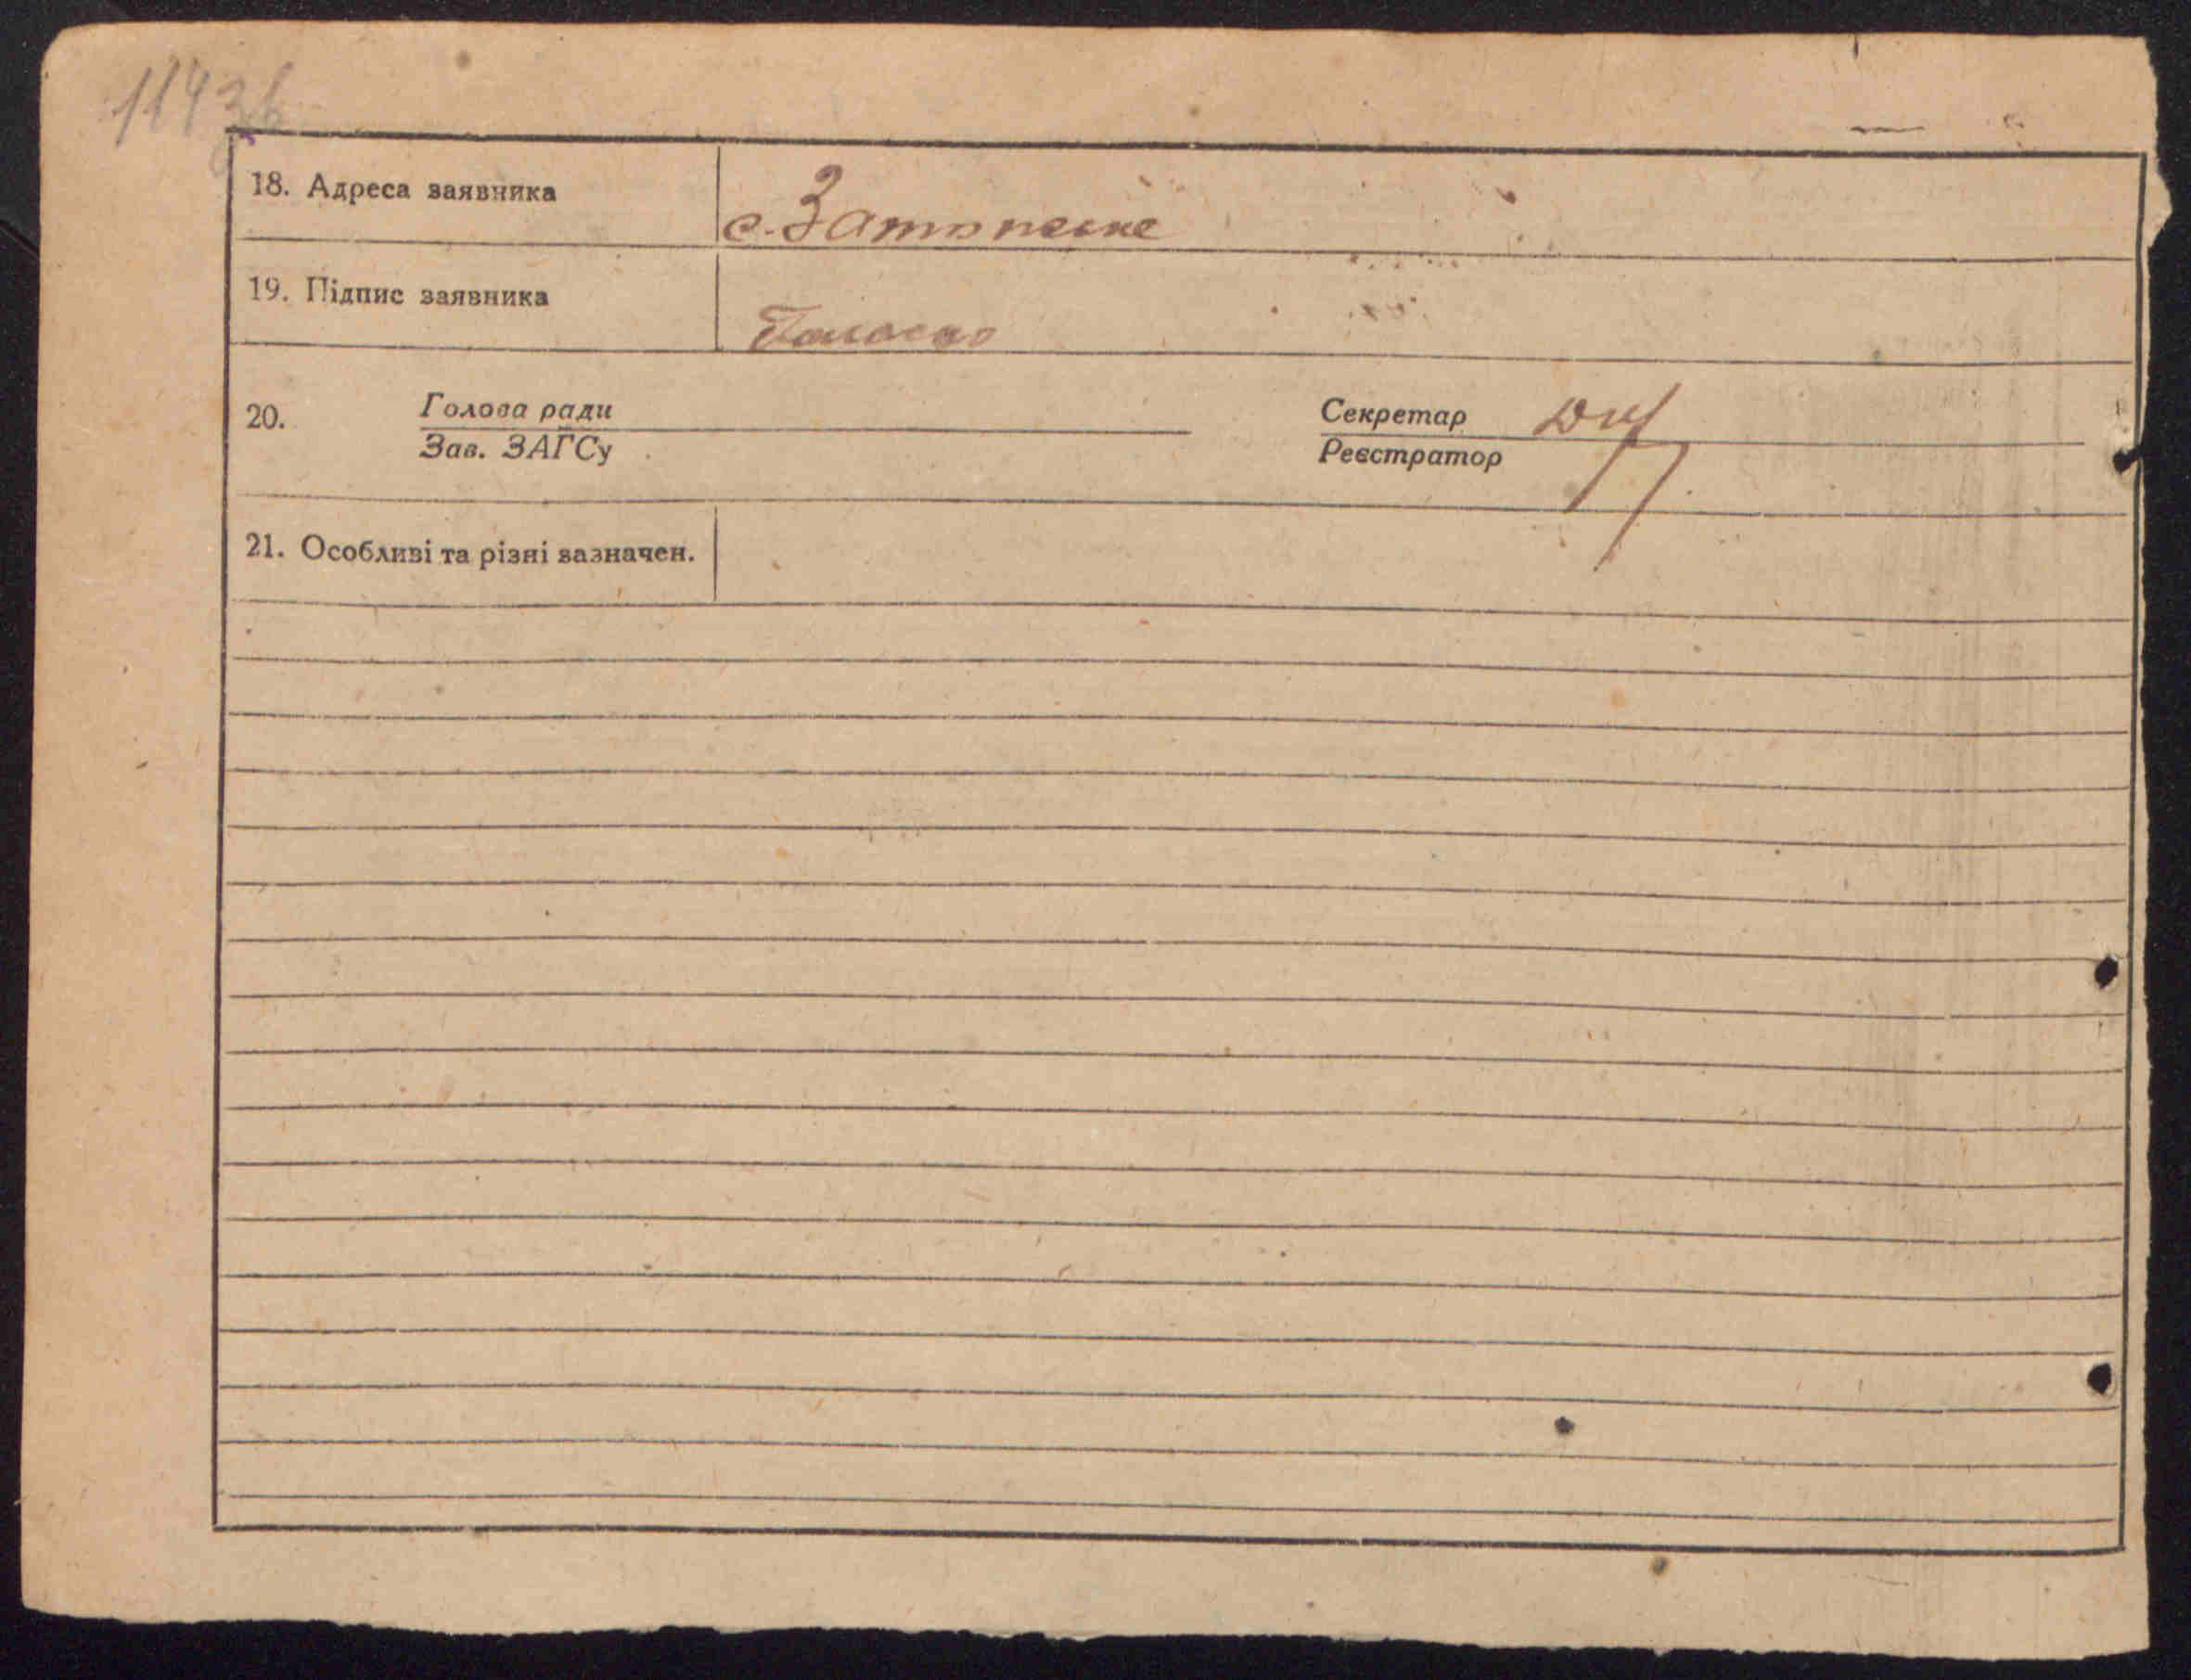 18. Адреса заявника
с. Затонське
19. Підпис заявника
20. Голова ради
Зав. ЗАГСу
Секретар
Реєстратор
21. Особливі та різні зазначен.